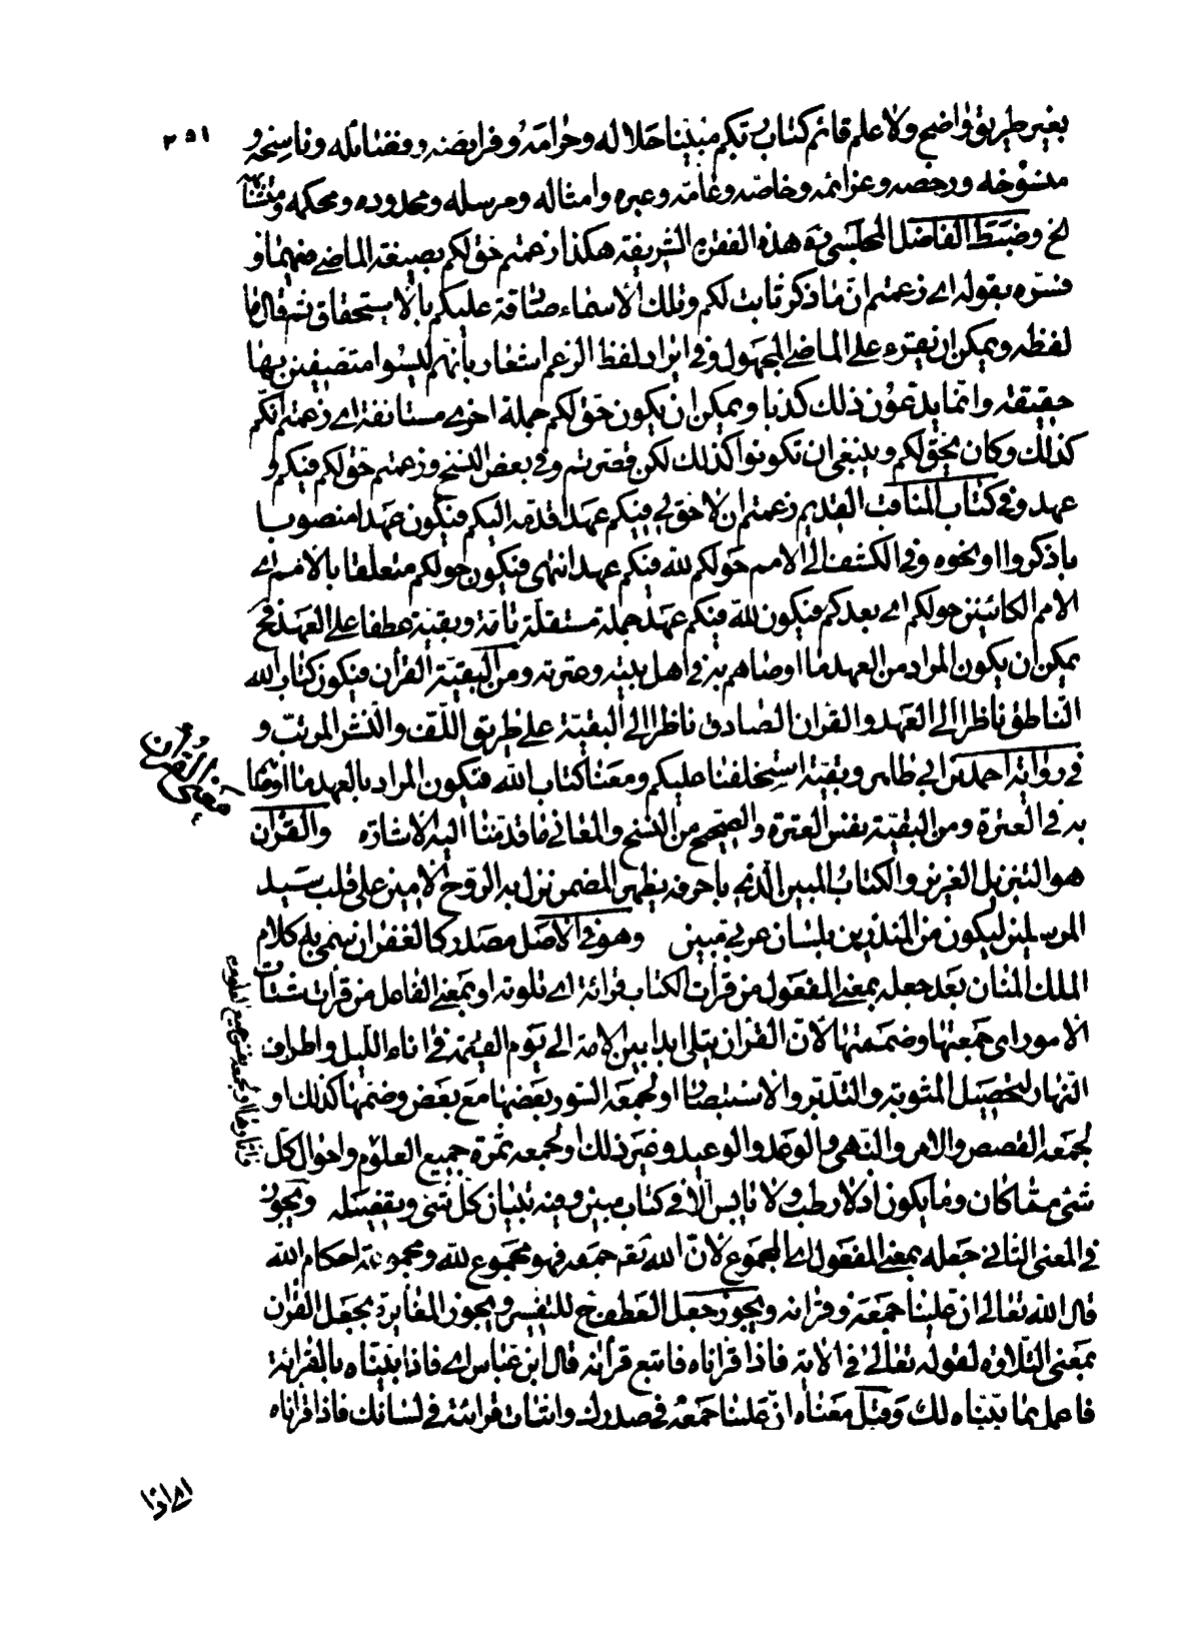 ٢٥١
بغير طريق واضح ولا علم قائم كتاب ربكم مبيّنا حلاله وحرامه وفرايضه وفضائله وناسخه و
منسوخه ورخصه وعزائمه وخاصّه وعامّه وعبره وامثاله ومرسله ومحدوده ومحكمه ومتشابهه
الخ وضبط الفاضل المجلسي ره هذه الفقرة الشريفة هكذا زعمتم حق لكم بصيغة الماضي منهما و
فسّره بقوله اي زعمتم انّ ما ذكر ثابت لكم وتلك الاسماء صادقة عليكم بالاستحقاق ثم قال ما
لفظه ويمكن ان يقرء على الماضي المجهول وفي ايراد لفظ الزعم اشعار بأنهم ليسوا متصفين بها
حقيقة وانما يدّعون ذلك كذبا ويمكن ان يكون حق لكم جملة اخرى مستانفة اي زعمتم انكم
كذلك وكان يحق لكم وينبغي ان تكونوا كذلك لكن قصرتم وفي بعض النسخ وزعمتم حق لكم فيكم و
عهد وفي كتاب المناقب القديم زعمتم ان لا حق لي فيكم عهدا قدمه اليكم فيكون عهدا منصوبا
باذكروا او نحوه وفي الكشف الى الامم حولكم لله فيكم عهد انتهى فيكون حولكم متعلقا بالامم اي
الامم الكائنين حولكم اي بعدكم فيكون لله فيكم عهد جملة مستقلة تامّة وبقية عطفا على العهد فح
يمكن ان يكون المراد من العهد ما اوصاهم به في اهل بيته وعترته ومن البقيّة القرآن فيكون كتاب الله
الناطق ناظرا الى العهد والقرآن الصادق ناظرا الى البقيّة على طريق اللّف والنشر المرتّب و
في رواية احمد بن ابي طاهر وبقيّة استخلفنا عليكم ومعنا كتاب الله فيكون المراد بالعهد ما اوصا
به في العترة ومن البقيّة نفس العترة والصحيح من النسخ والمعاني ما قدّمنا اليه الاشارة والقرآن
هو التنزيل العزيز والكتاب المبين الذي باحرفه يظهر المضمر نزل به الروح الامين على قلب سيد
المرسلين ليكون من المنذرين بلسان عربي مبين وهو في الاصل مصدر كالغفران سمى به كلام
الملك المنان بعد جعله بمعنى المفعول من قرأت الكتاب قرائة اي تلوته او بمعنى الفاعل من قرأت شتات
الامور اي جمعتها وضممتها لانّ القرآن يتلى ابدا بين الامة الى يوم القيمة في اناء الليل واطراف
النهار لتحصيل المثوبة والتدبّر والاستبصار او لجمعه السور بعضها مع بعض وضمّها كذلك او
لجمعه القصص والامر والنهي والوعد والوعيد وغير ذلك او لجمعه ثمرة جميع العلوم واحوال كلّ
شيء مما كان وما يكون اذ لا رطب ولا يابس الا في كتاب مبين وفيه تبيان كلّ شيء وتفصيله ويجوز
في المعنى الثاني جعله بمعنى المفعول اي المجموع لانّ الله تعه جمعه فهو مجموع لله ومجموعة احكام الله
قال الله تعالى انّ علينا جمعه وقرآنه ويجوز جعل العطف ح للتفسير ويجوز المغايرة بجعل القرآن
بمعنى التلاوة لقوله تعالى في الاية فاذا قرأناه فاتبع قرآنه قال ابن عباس اي فاذا بيّناه بالقرائة
فاعمل بما بيّناه لك وقيل معناه انّ علينا جمعه في صدرك واثبات قرائته في لسانك فاذا قرأناه
معاني القرآن
اي اذا